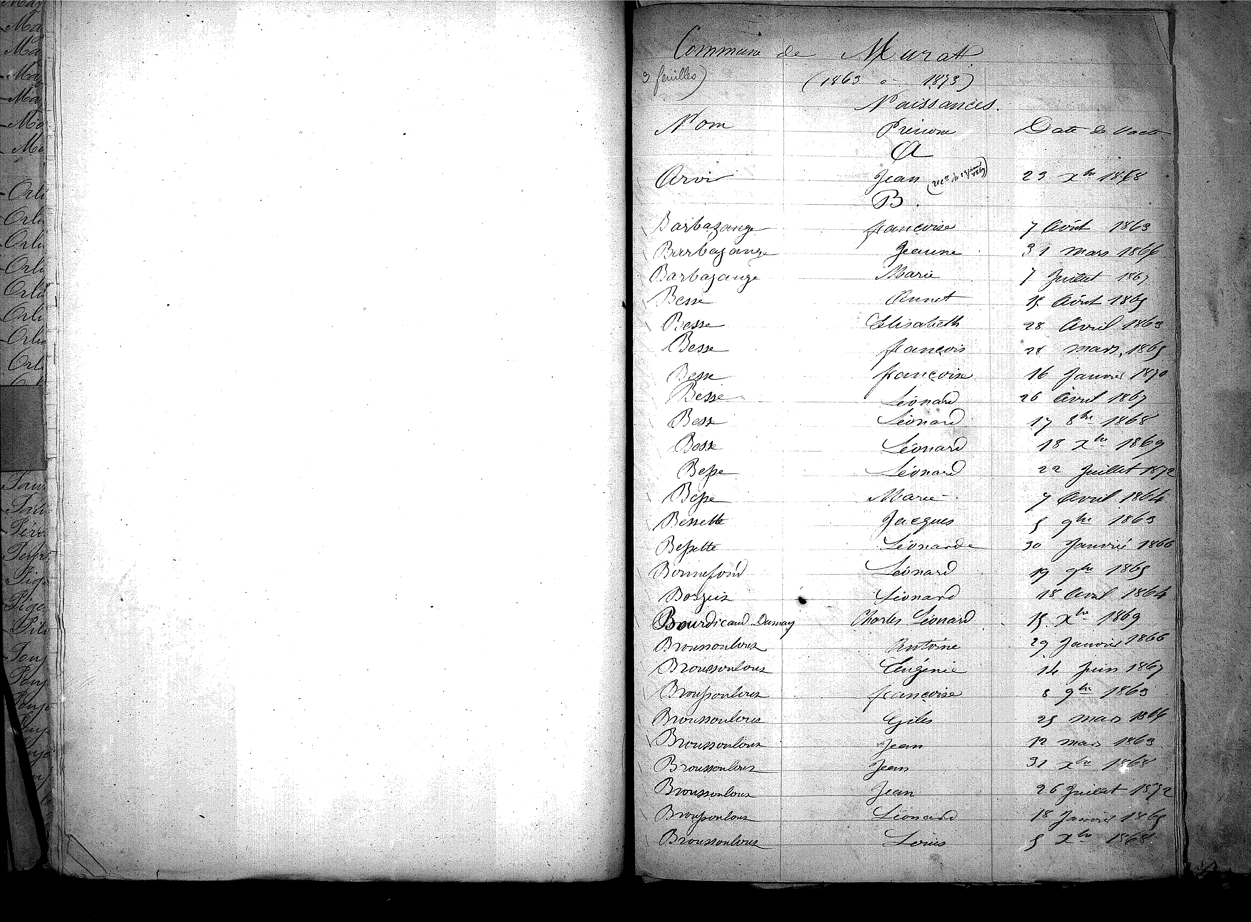 Commune de Murat
3 feuilles)
(1863 à 1873)
Naissances.
Nom Prénom Date de l'acte
A
Arvi Jean 23 Xbre 1868
B.
Barbazange françoise 7 Août 1863
Barbazange Jeanne 31 mars 1866
Barbazange Marie 7 Juillet 1867
Besse Annet 15 Août 1865
Besse Elisabeth 28 Avril 1863
Besse françois 28 mars 1865
Besse françoise 16 Janvier 1870
Besse Léonard 26 Avril 1867
Besse Léonard 17 8bre 1868
Besse Léonard 18 Xbre 1869
Besse Léonard 22 Juillet 1872
Besse Marie 7 Avril 1864
Bessette Jacques 5 9bre 1863
Bessette Léonarde 30 Janvié 1866
Bonnefond Léonard 19 7bre 1865
Léonard 18 Avril 1864
Bourdicaud Dumay Charles Léonard 15 Xbre 1869
Broussouloux Antoine 29 Janvier 1866
Broussouloux Eugénie 14 Juin 1867
Broussouloux françoise 8 9bre 1863
Broussouloux Giles 25 mars 1866
Broussouloux Jean 12 mars 1863
Broussouloux Jean 31 Xbre 1868
Broussouloux Jean 26 Juillet 1872
Broussouloux Léonard 18 Janvier 1865
Broussouloux Louis 5 Xbre 1868